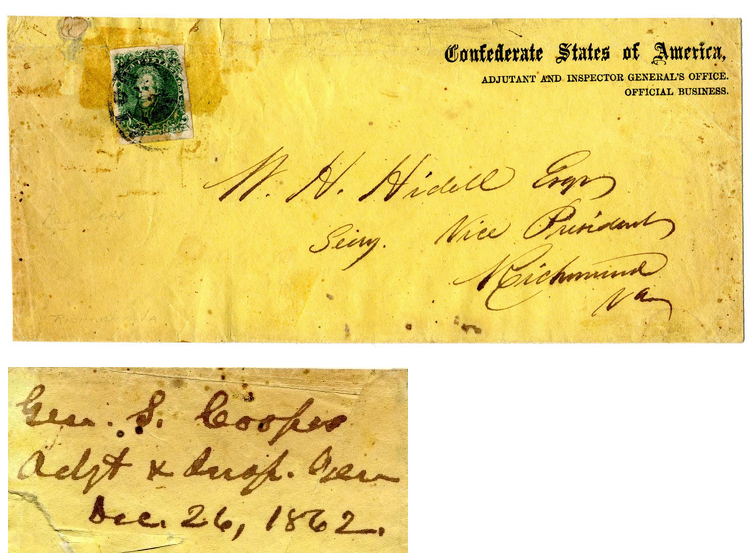 Confederate States of America,
ADJUTANT AND INSPECTOR GENERAL'S OFFICE.
OFFICIAL BUSINESS.
W. H. Hidell Esqr
Secy. Vice President
Richmond
Va
Gen. S. Cooper
Adjt & Insp. Gen
Dec. 26, 1862.